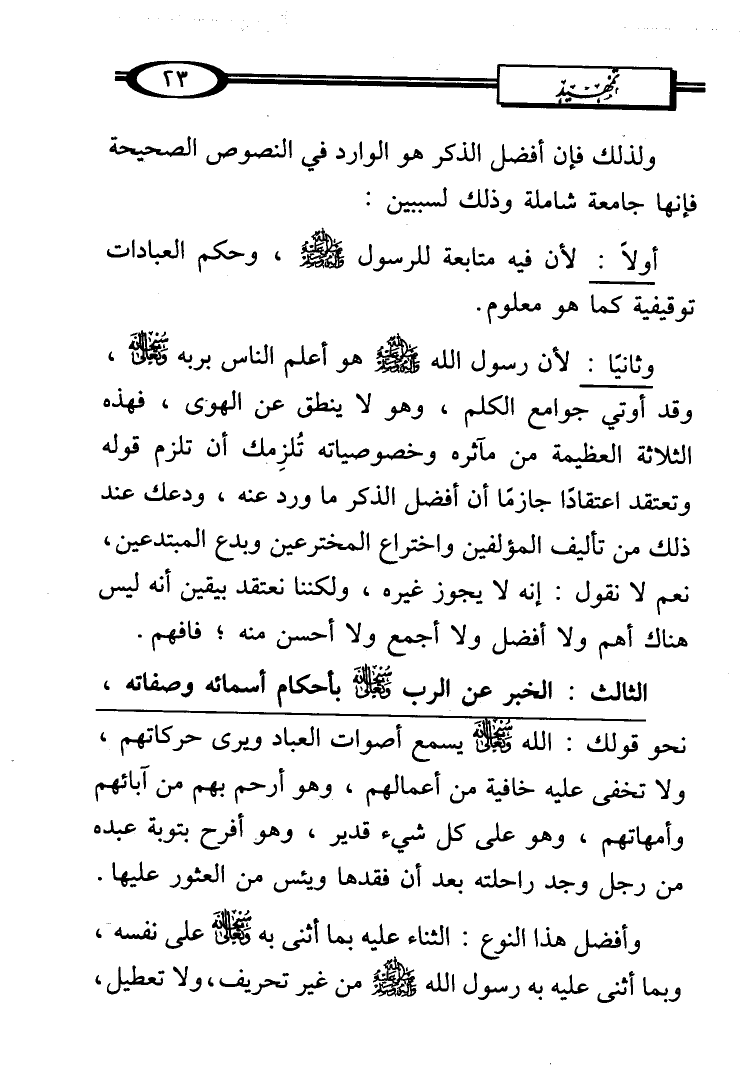 تمهيد
٢٣
ولذلك فإن أفضل الذكر هو الوارد في النصوص الصحيحة
فإنها جامعة شاملة وذلك لسببين :
أولاً : لأن فيه متابعة للرسول ﷺ ، وحكم العبادات
توقيفية كما هو معلوم.
وثانيًا : لأن رسول الله ﷺ هو أعلم الناس بربه سبحانه وتعالى ،
وقد أوتي جوامع الكلم ، وهو لا ينطق عن الهوى ، فهذه
الثلاثة العظيمة من مآثره وخصوصياته تُلزِمك أن تلزم قوله
وتعتقد اعتقادًا جازمًا أن أفضل الذكر ما ورد عنه ، ودعك عند
ذلك من تأليف المؤلفين واختراع المخترعين وبدع المبتدعين،
نعم لا نقول : إنه لا يجوز غيره ، ولكننا نعتقد بيقين أنه ليس
هناك أهم ولا أفضل ولا أجمع ولا أحسن منه ؛ فافهم .
الثالث : الخبر عن الرب سبحانه وتعالى بأحكام أسمائه وصفاته ،
نحو قولك : الله سبحانه وتعالى يسمع أصوات العباد ويرى حركاتهم ،
ولا تخفى عليه خافية من أعمالهم ، وهو أرحم بهم من آبائهم
وأمهاتهم ، وهو على كل شيء قدير ، وهو أفرح بتوبة عبده
من رجل وجد راحلته بعد أن فقدها ويئس من العثور عليها .
وأفضل هذا النوع : الثناء عليه بما أثنى به سبحانه وتعالى على نفسه ،
وبما أثنى عليه به رسول الله ﷺ من غير تحريف،ولا تعطيل،